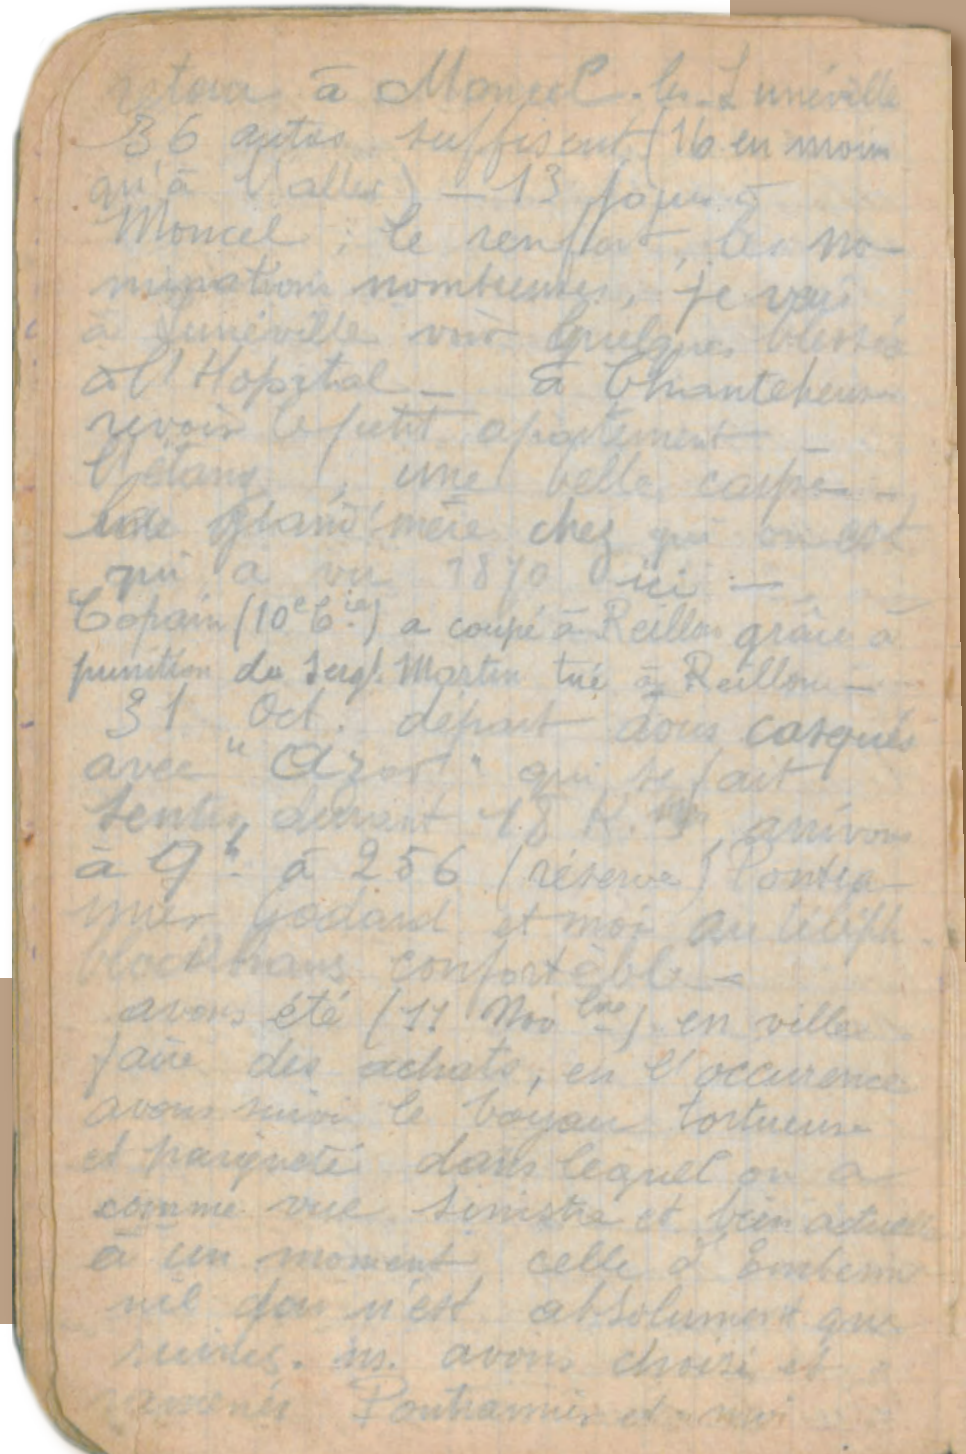 retour à Moncel-les-Lunéville
36 autos suffisent (16 en moin
qu'à l'aller) — 13 jours à
Moncel ; le renfort, les no-
minations nombreuses, je vais
à Lunéville voir quelques blessés
à l'Hopital — à Chanteheux
revoir le petit apartement
l'étang, une belle carpe —
une grand'mère chez qui on est
qui a vu 1870 ici —
Copain (10e Cie) a coupé à Reillon grâce à
punition du Sergt. Martin tué à Reillon —
31 Oct. départ tous casqués
avec "Azor" qui se fait
sentir durant 18 K.m, arrivons
à 9h à 256 (réserve) Pontra-
mier Godard et moi au téléph.
blockhaus confortable —
avons été (11 Nov bre) en ville
faire des achats, en l'occurence
avons suivi le boyau tortueux
et parqueté dans lequel on a
comme vue sinistre et bien actuelle
à un moment celle d'Emberme-
nil qui n'est absolument que
ruines. ns. avons choisi et
ramenés Pontramier et moi